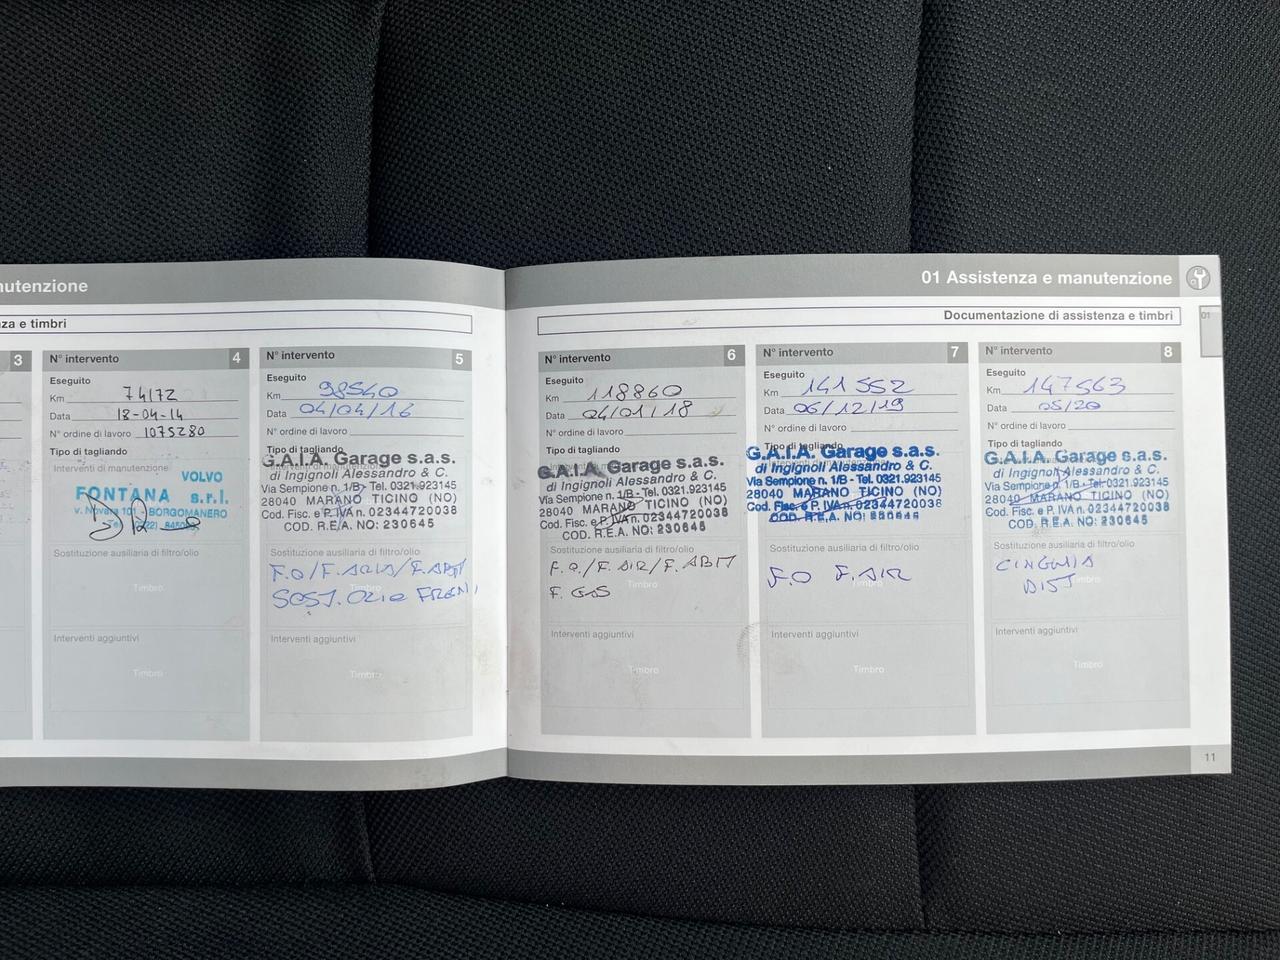 nutenzione
za e timbri
3
N° intervento 4
Eseguito
Km 74172
Data 18-04-14
N° ordine di lavoro 1075280
Tipo di tagliando
Interventi di manutenzione
VOLVO
FONTANA s.r.l.
v. Novara 101 BORGOMANERO
Sostituzione ausiliaria di filtro/olio
Timbro
Interventi aggiuntivi
Timbro
N° intervento 5
Eseguito
Km 98540
Data 04/04/16
N° ordine di lavoro
Tipo di tagliando
G.A.I.A. Garage s.a.s.
di Ingignoli Alessandro & C.
Via Sempione n. 1/B - Tel. 0321.923145
28040 MARANO TICINO (NO)
Cod. Fisc. e P. IVA n. 02344720038
COD. R.E.A. NO: 230645
Sostituzione ausiliaria di filtro/olio
F.O/F.ARIA/F.ABIT
Timbro
SOST. OLIO FRENI
Interventi aggiuntivi
Timbro
01 Assistenza e manutenzione
01
Documentazione di assistenza e timbri
N° intervento 6
Eseguito
Km 118860
Data 04/01/18
N° ordine di lavoro
Tipo di tagliando
G.A.I.A. Garage s.a.s.
di Ingignoli Alessandro & C.
Via Sempione n. 1/B - Tel. 0321.923145
28040 MARANO TICINO (NO)
Cod. Fisc. e P. IVA n. 02344720038
COD. R.E.A. NO: 230645
Sostituzione ausiliaria di filtro/olio
F.O./F.AIR/F.ABIT
Timbro
F. GAS
Interventi aggiuntivi
Timbro
N° intervento 7
Eseguito
Km 141552
Data 06/12/19
N° ordine di lavoro
Tipo di tagliando
G.A.I.A. Garage s.a.s.
di Ingignoli Alessandro & C.
Via Sempione n. 1/B - Tel. 0321.923145
28040 MARANO TICINO (NO)
Cod. Fisc. e P. IVA n. 02344720038
COD. R.E.A. NO: 230645
Sostituzione ausiliaria di filtro/olio
F.O F.AIR
Timbro
Interventi aggiuntivi
Timbro
N° intervento 8
Eseguito
Km 147563
Data 05/20
N° ordine di lavoro
Tipo di tagliando
G.A.I.A. Garage s.a.s.
di Ingignoli Alessandro & C.
Via Sempione n. 1/B - Tel. 0321.923145
28040 MARANO TICINO (NO)
Cod. Fisc. e P. IVA n. 02344720038
COD. R.E.A. NO: 230645
Sostituzione ausiliaria di filtro/olio
CINGHIA
DIST
Timbro
Interventi aggiuntivi
Timbro
11